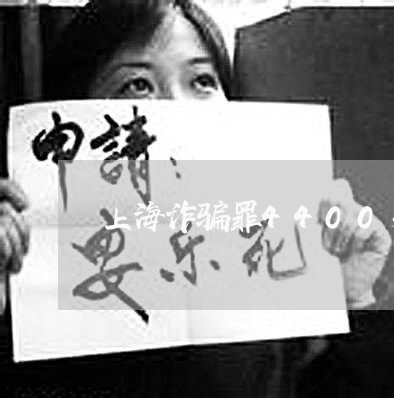 申請：
上海诈骗罪4400
安乐死